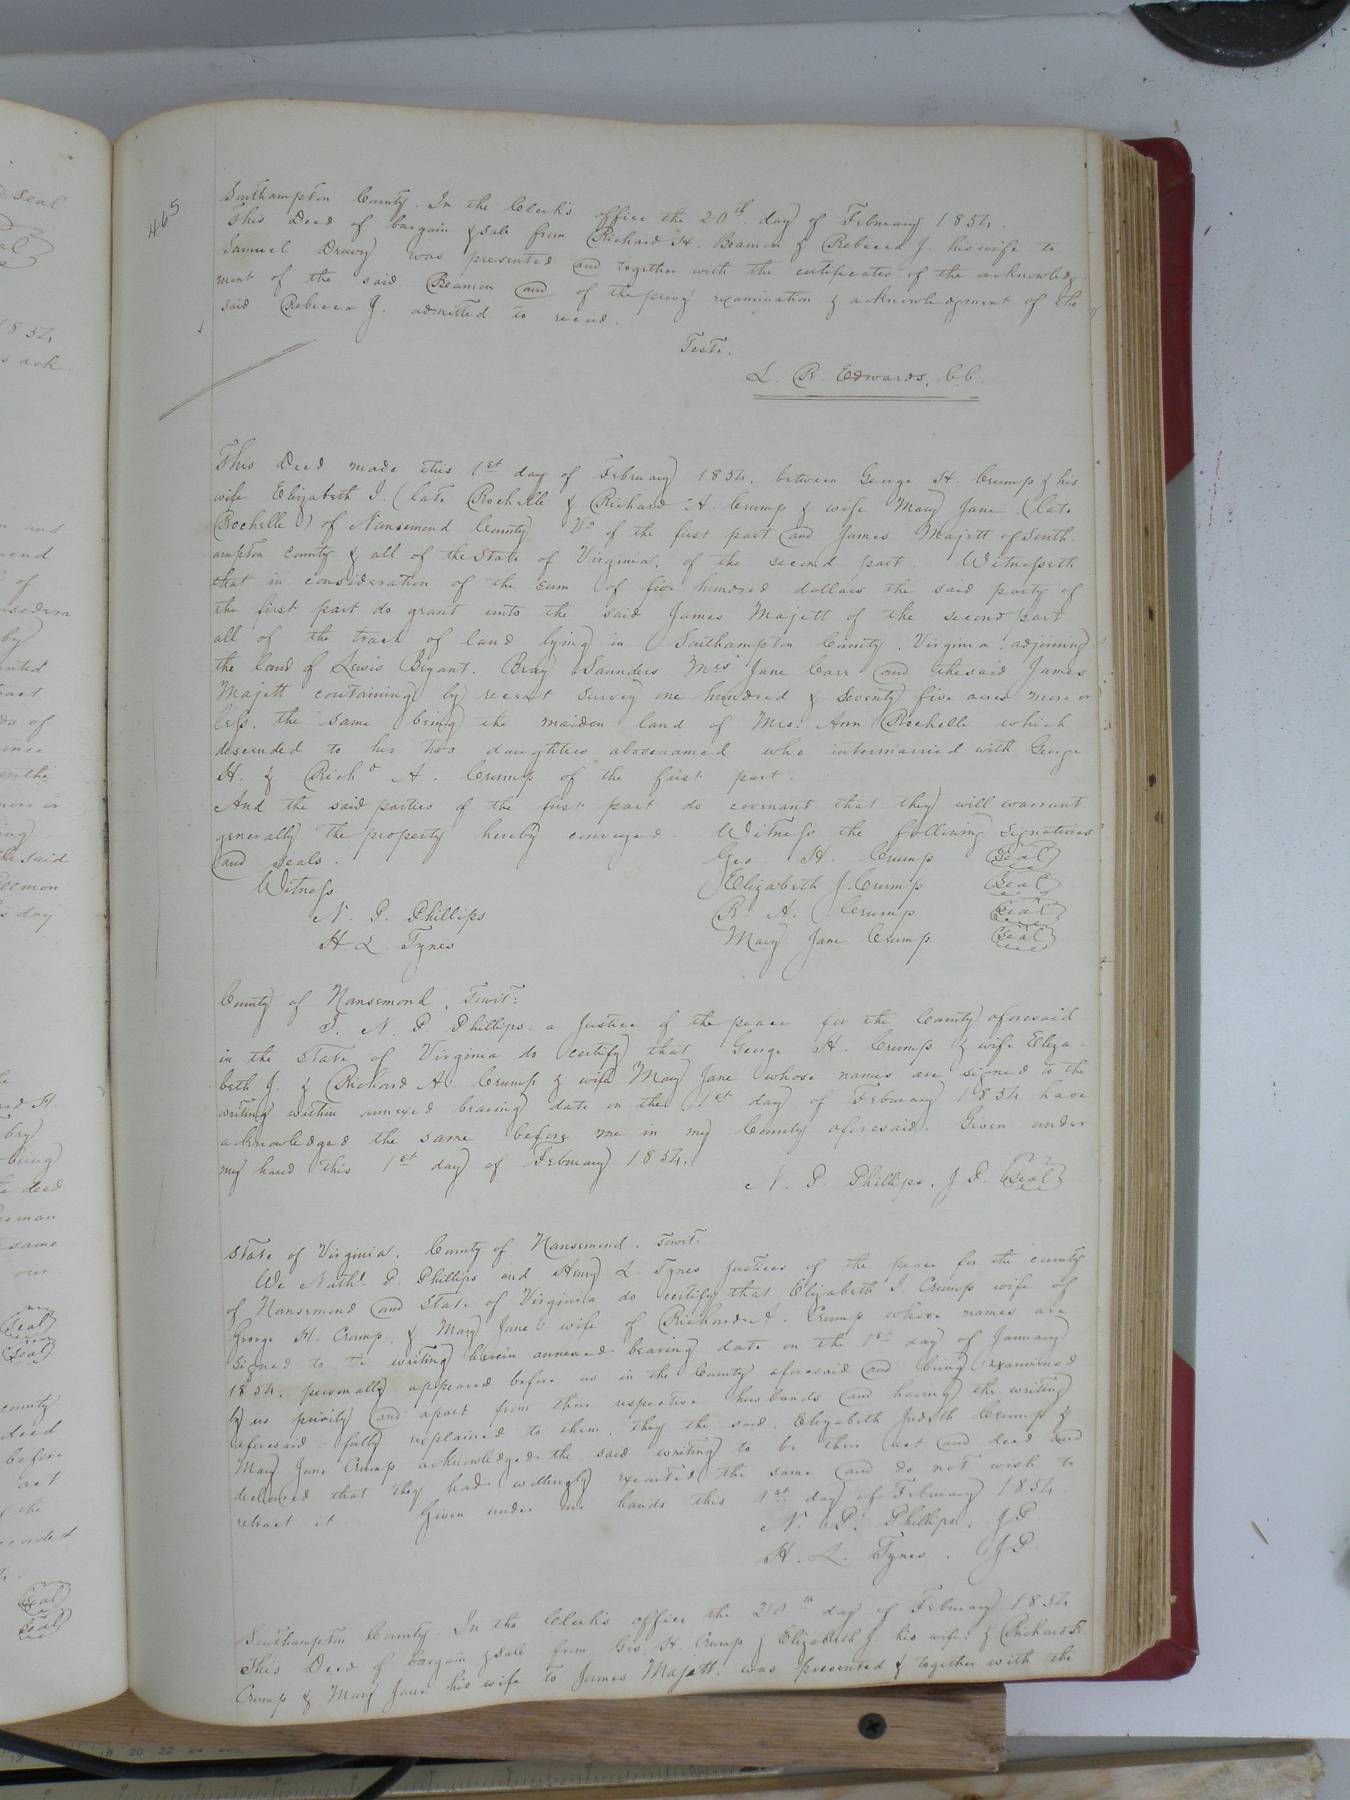 465
Southampton County. In the Clerk's office the 20th day of February 1854.
This Deed of bargain & sale from Richard H. Beamon & Rebecca J. his wife to
Samuel Drewry was presented and together with the certificates of the acknowledg-
ment of the said Beamon and of the privy examination & acknowledgment of the
said Rebecca J. admitted to record.
Teste.
L. R. Edwards, C.C.
This Deed made this 1st day of February 1854, between George H. Crump & his
wife Elizabeth J. (late Rochelle & Richard A. Crump & wife Mary Jane (late
Rochelle) of Nansemond County Va of the first part and James Majett of South-
ampton County & all of the State of Virginia, of the second part. Witnesseth
that in consideration of the sum of five hundred dollars the said party of
the first part do grant unto the said James Majett of the second part
all of the track of land lying in Southampton County, Virginia adjoining
the land of Lewis Bryant, Bray Saunders Mrs Jane Carr and the said James
Majett containing by recent survey one hundred & Seventy five acres more or
less, the same being the maiden land of Mrs. Ann Rochelle which
descended to her two daughters abovenamed who intermarried with George
H. & Richd A. Crump of the first part.
And the said parties of the first part do covenant that they will warrant
generally the property hereby conveyed. Witness the following signatures
and seals.
Geo. H. Crump Seal
Witness
Elizabeth J. Crump Seal
N. P. Phillips
R. A. Crump Seal
H. L. Tynes
Mary Jane Crump Seal
County of Nansemond, Towit:
I, N. P. Phillips a Justice of the peace for the County aforesaid
in the State of Virginia do certify that George H. Crump & wife Eliza-
beth J. & Richard A. Crump & wife Mary Jane whose names are signed to the
writing within annexed bearing date on the 1st day of February 1854 have
acknowledged the same before me in my County aforesaid. Given under
my hand this 1st day of February 1854.
N. P. Phillips, J P. Seal
State of Virginia, County of Nansemond, Towit:
We Nathl. P. Phillips and Henry L. Tynes Justices of the peace for the county
of Nansemond and State of Virginia do certify that Elizabeth J. Crump wife of
George H. Crump, & Mary Jane wife of Richard A. Crump whose names are
signed to the writing herein annexed bearing date on the 1st day of January
1854, personally appeared before us in the County aforesaid and being examined
by us privily and apart from their respective husbands and having the writing
aforesaid fully explained to them, they the said, Elizabeth Judith Crump &
Mary Jane Crump acknowledged the said writing to be their act and deed and
declared that they had willingly executed the same and do not wish to
retract it. Given under our hands this 1st day of February 1854.
N. P. Phillips, J P
H. L. Tynes. J P.
Southampton County. In the Clerk's office the 20th day of February 1854
This Deed of bargain & sale from Geo. H. Crump & Elizabeth J. his wife, & Richard A.
Crump & Mary Jane his wife to James Majett, was presented & together with the